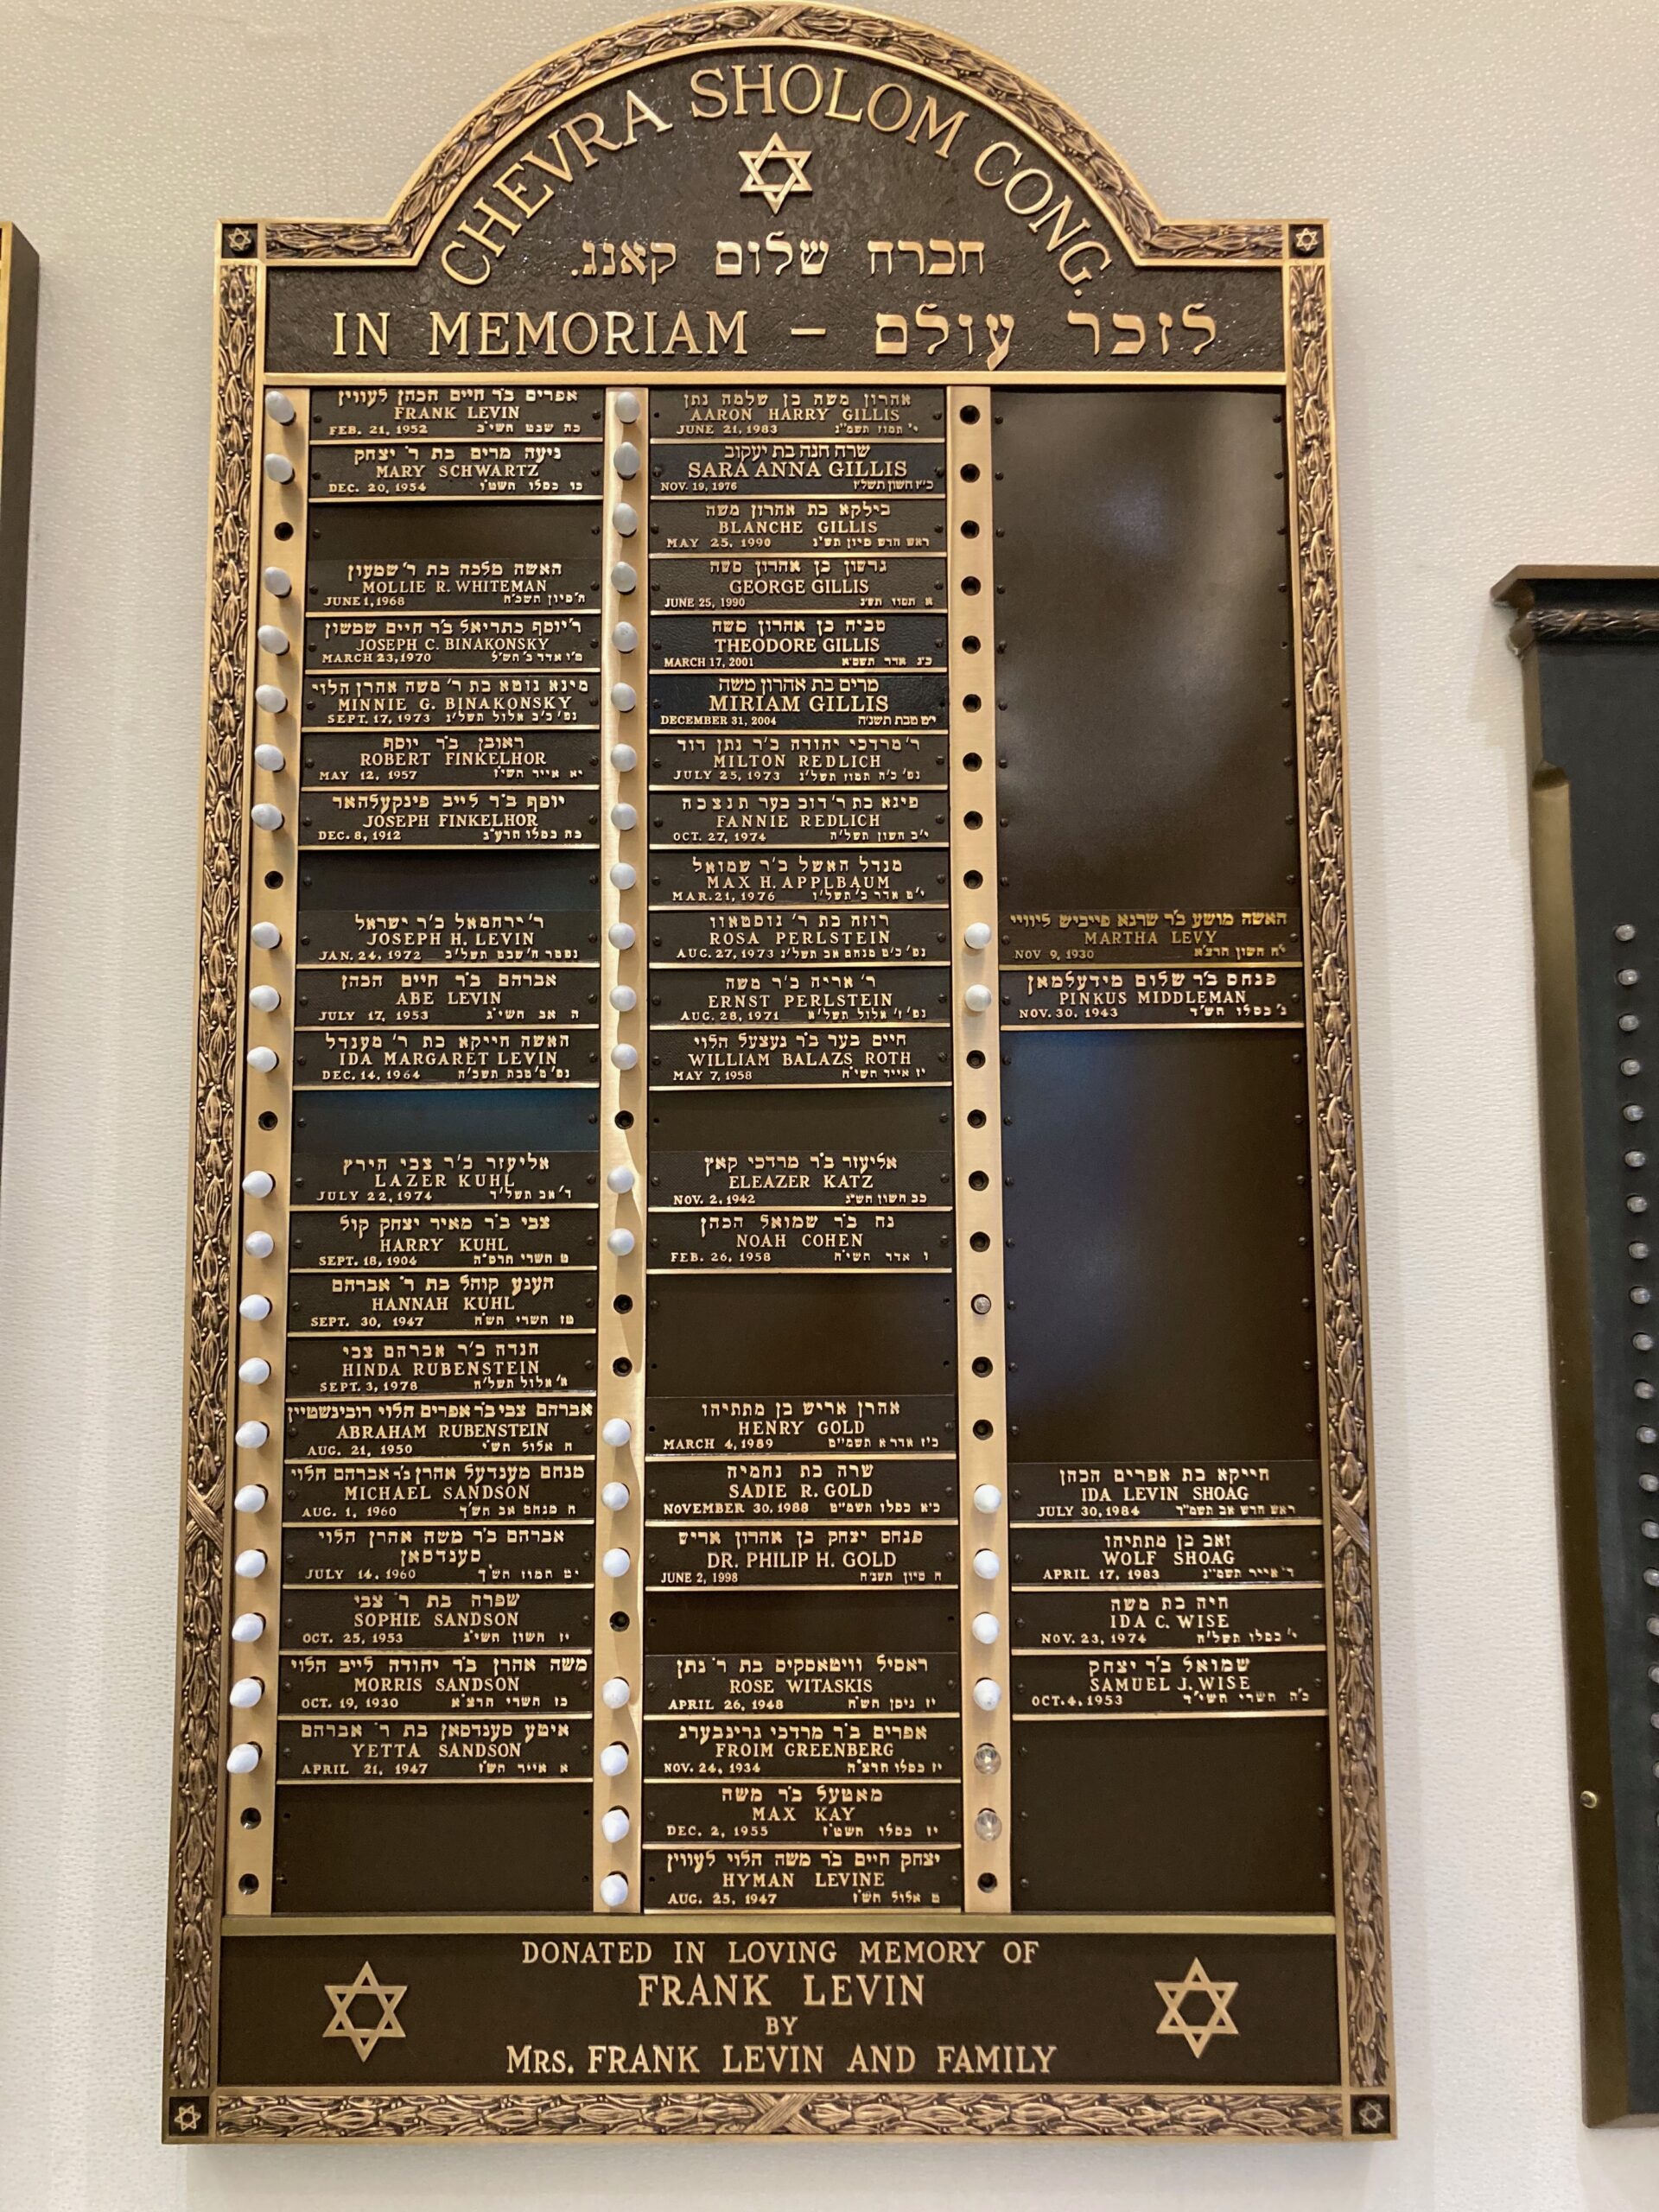 CHEVRA SHOLOM CONG.
חברה שלום קאנג.
IN MEMORIAM – לזכר עולם
אפרים ב״ר חיים הכהן לעווין
FRANK LEVIN
FEB. 21, 1952 כה שבט תשי״ב
ניעה מרים בת ר׳ יצחק
MARY SCHWARTZ
DEC. 20, 1954 כו כסלו תשט״ו
האשה מלכה בת ר׳ שמעון
MOLLIE R. WHITEMAN
JUNE 1, 1968 ה׳סיון תשכ״ח
ר׳יוסף כתריאל ב״ר חיים שמשון
JOSEPH C. BINAKONSKY
MARCH 23, 1970 ט״ו אדר ב׳ תש״ל
מינא גוטא בת ר׳ משה אהרן הלוי
MINNIE G. BINAKONSKY
SEPT. 17, 1973
ראובן ב״ר יוסף
ROBERT FINKELHOR
MAY 12, 1957 יא אייר תשי״ז
יוסף ב״ר לייב פינקעלהאר
JOSEPH FINKELHOR
DEC. 8, 1912 כח כסלו תרע״ג
ר׳ ירחמאל ב״ר ישראל
JOSEPH H. LEVIN
JAN. 24, 1972 נפטר ח׳ שבט תשל״ב
אברהם ב״ר חיים הכהן
ABE LEVIN
JULY 17, 1953 ה אב תשי״ג
האשה חייקא בת ר׳ מענדל
IDA MARGARET LEVIN
DEC. 14, 1964 נפ׳ ט׳ טבת תשכ״ה
אליעזר ב״ר צבי הירץ
LAZER KUHL
JULY 22, 1974 ד׳ אב תשל״ד
צבי ב״ר מאיר יצחק קול
HARRY KUHL
SEPT. 18, 1904 ט תשרי תרס״ה
הענע קוהל בת ר׳ אברהם
HANNAH KUHL
SEPT. 30, 1947 טז תשרי תש״ח
הנדה ב״ר אברהם צבי
HINDA RUBENSTEIN
SEPT. 3, 1978 א׳ אלול תשל״ח
אברהם צבי ב״ר אפרים הלוי רובינשטיין
ABRAHAM RUBENSTEIN
AUG. 21, 1950 ח אלול תש״י
מנחם מענדעל אהרן ב״ר אברהם הלוי
MICHAEL SANDSON
AUG. 1, 1960 ח מנחם אב תש״ך
אברהם ב״ר משה אהרן הלוי
סענדסאן
JULY 14, 1960 יט תמוז תש״ך
שפרה בת ר׳ צבי
SOPHIE SANDSON
OCT. 25, 1953 יז חשון תשי״ג
משה אהרן ב״ר יהודה לייב הלוי
MORRIS SANDSON
OCT. 19, 1930 כז תשרי תרצ״א
איטע סענדסאן בת ר׳ אברהם
YETTA SANDSON
APRIL 21, 1947 א אייר תש״ז
אהרון משה בן שלמה נתן
AARON HARRY GILLIS
JUNE 21, 1983 י׳ תמוז תשמ״ג
שרה חנה בת יעקוב
SARA ANNA GILLIS
NOV. 19, 1976 כ״ז חשון תשל״ז
בילקא בת אהרון משה
BLANCHE GILLIS
MAY 25, 1990 ראש חדש סיון תש״נ
גרשון בן אהרון משה
GEORGE GILLIS
JUNE 25, 1990 א תמוז תש״נ
טביה בן אהרון משה
THEODORE GILLIS
MARCH 17, 2001 כ״ג אדר תשס״א
מרים בת אהרון משה
MIRIAM GILLIS
DECEMBER 31, 2004 י״ט טבת תשנ״ה
ר׳ מרדכי יהודה ב״ר נתן דוד
MILTON REDLICH
JULY 25, 1973 נפ׳ כ״ה תמוז תשל״ג
פיגא בת ר׳ דוב בער תנצבה
FANNIE REDLICH
OCT. 27, 1974 י״ב חשון תשל״ה
מנדל האשל ב״ר שמואל
MAX H. APPLBAUM
MAR. 21, 1976 י״ט אדר ב׳ תשל״ו
רוזה בת ר׳ גוסטאוו
ROSA PERLSTEIN
AUG. 27, 1973 נפ׳ כ״ט מנחם אב תשל״ג
ר׳ אריה ב״ר משה
ERNST PERLSTEIN
AUG. 28, 1971 נפ׳ ז׳ אלול תשל״א
חיים בער ב״ר געצעל הלוי
WILLIAM BALAZS ROTH
MAY 7, 1958 יז אייר תשי״ח
אליעזר ב״ר מרדכי קאץ
ELEAZER KATZ
NOV. 2, 1942 כב חשון תש״ג
נח ב״ר שמואל הכהן
NOAH COHEN
FEB. 26, 1958 ו אדר תשי״ח
אהרן אריש בן מתתיהו
HENRY GOLD
MARCH 4, 1989 כ״ז אדר א תשמ״ט
שרה בת נחמיה
SADIE R. GOLD
NOVEMBER 30, 1988 כ״א כסלו תשמ״ט
פנחס יצחק בן אהרון אריש
DR. PHILIP H. GOLD
JUNE 2, 1998 ח סיון תשנ״ח
ראסיל וויטאסקיס בת ר׳ נתן
ROSE WITASKIS
APRIL 26, 1948 יז ניסן תש״ח
אפרים ב״ר מרדכי גרינבערג
FROIM GREENBERG
NOV. 24, 1934 יז כסלו תרצ״ה
מאטעל ב״ר משה
MAX KAY
DEC. 2, 1955 יז כסלו תשט״ז
יצחק חיים ב״ר משה הלוי לעווין
HYMAN LEVINE
AUG. 25, 1947 ט אלול תש״ז
האשה מושע ב״ר שרגא פייביש ליוויי
MARTHA LEVY
NOV 9, 1930 י״ח חשון תרצ״א
פנחס ב״ר שלום מידעלמאן
PINKUS MIDDLEMAN
NOV. 30, 1943 ג׳ כסלו תש״ד
חייקא בת אפרים הכהן
IDA LEVIN SHOAG
JULY 30, 1984 ראש חדש אב תשמ״ד
זאב בן מתתיהו
WOLF SHOAG
APRIL 17, 1983 ד׳ אייר תשמ״ג
חיה בת משה
IDA C. WISE
NOV. 23, 1974 י׳ כסלו תשל״ה
שמואל ב״ר יצחק
SAMUEL J. WISE
OCT. 4, 1953 כ״ה תשרי תשי״ד
DONATED IN LOVING MEMORY OF
FRANK LEVIN
BY
MRS. FRANK LEVIN AND FAMILY